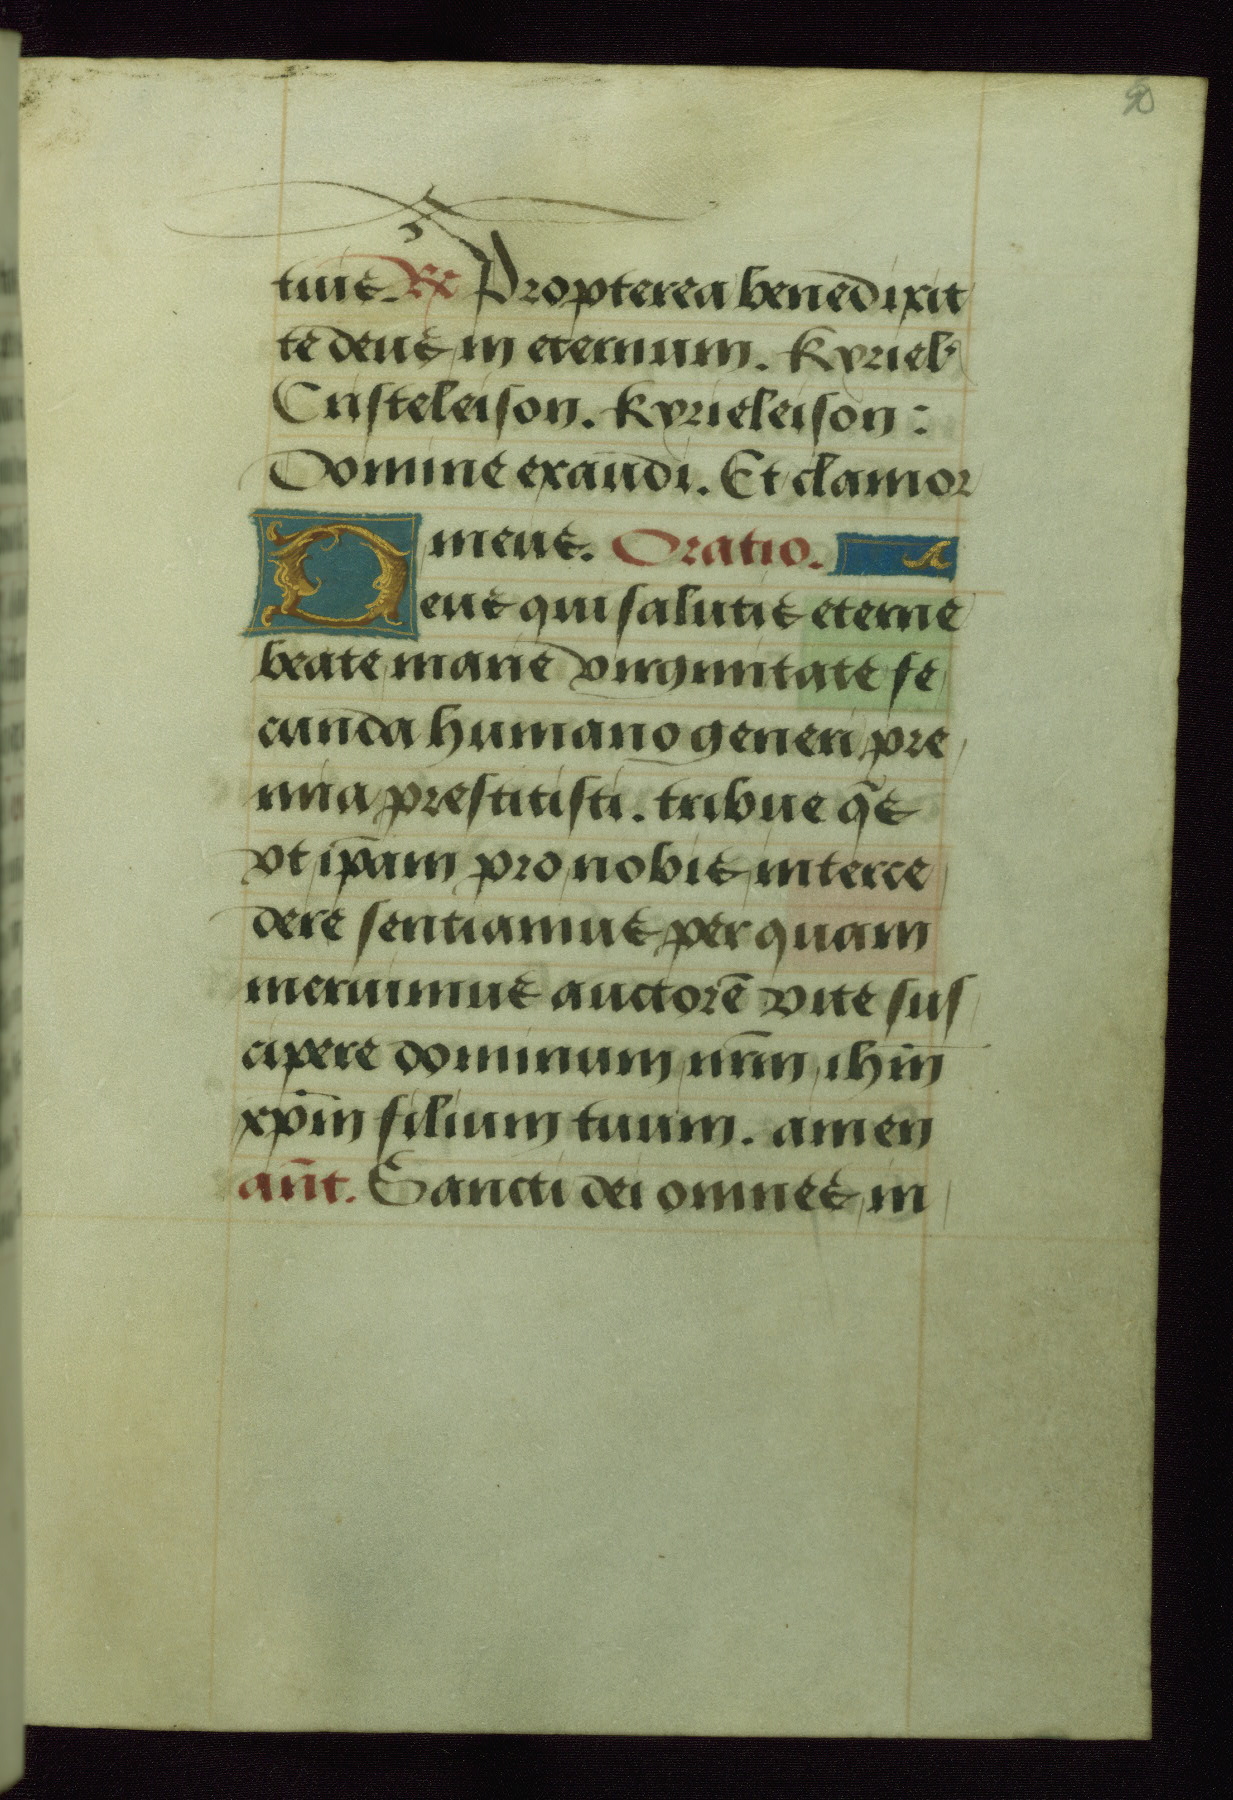 50
tuis. ℟ Propterea benedixit
te deus in eternum. Kyriel
Cristeleison. Kyrieleison:
Domine exaudi. Et clamor
meus. Oratio.
Deus qui salutis eterne
beate marie virginitate fe
cunda humano generi pre
mia prestitisti. tribue qs̄
vt ip̄am pro nobis interce
dere sentiamus per quam
meruimus auctorē vite sus
cipere dominum nr̄m ihm̄
xp̄m filium tuum. amen
an̄t. Sancti dei omnes in